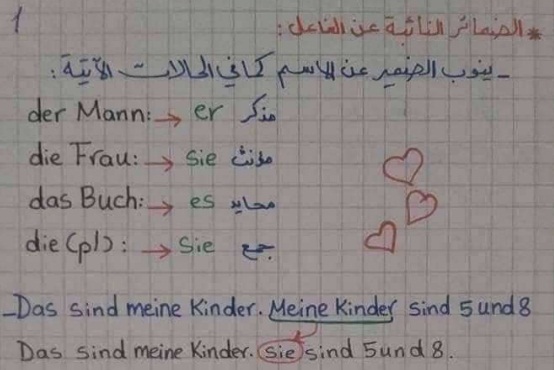 1
* الضمائر النائبة عن الفاعل:
- ينوب الضمير عن الاسم كما في الحالات الآتية:
der Mann: → er مذكر
die Frau: → sie مؤنث
das Buch: → es محايد
die (pl): → Sie جمع
- Das sind meine Kinder. Meine Kinder sind 5 und 8
Das sind meine Kinder. Sie sind 5 und 8.